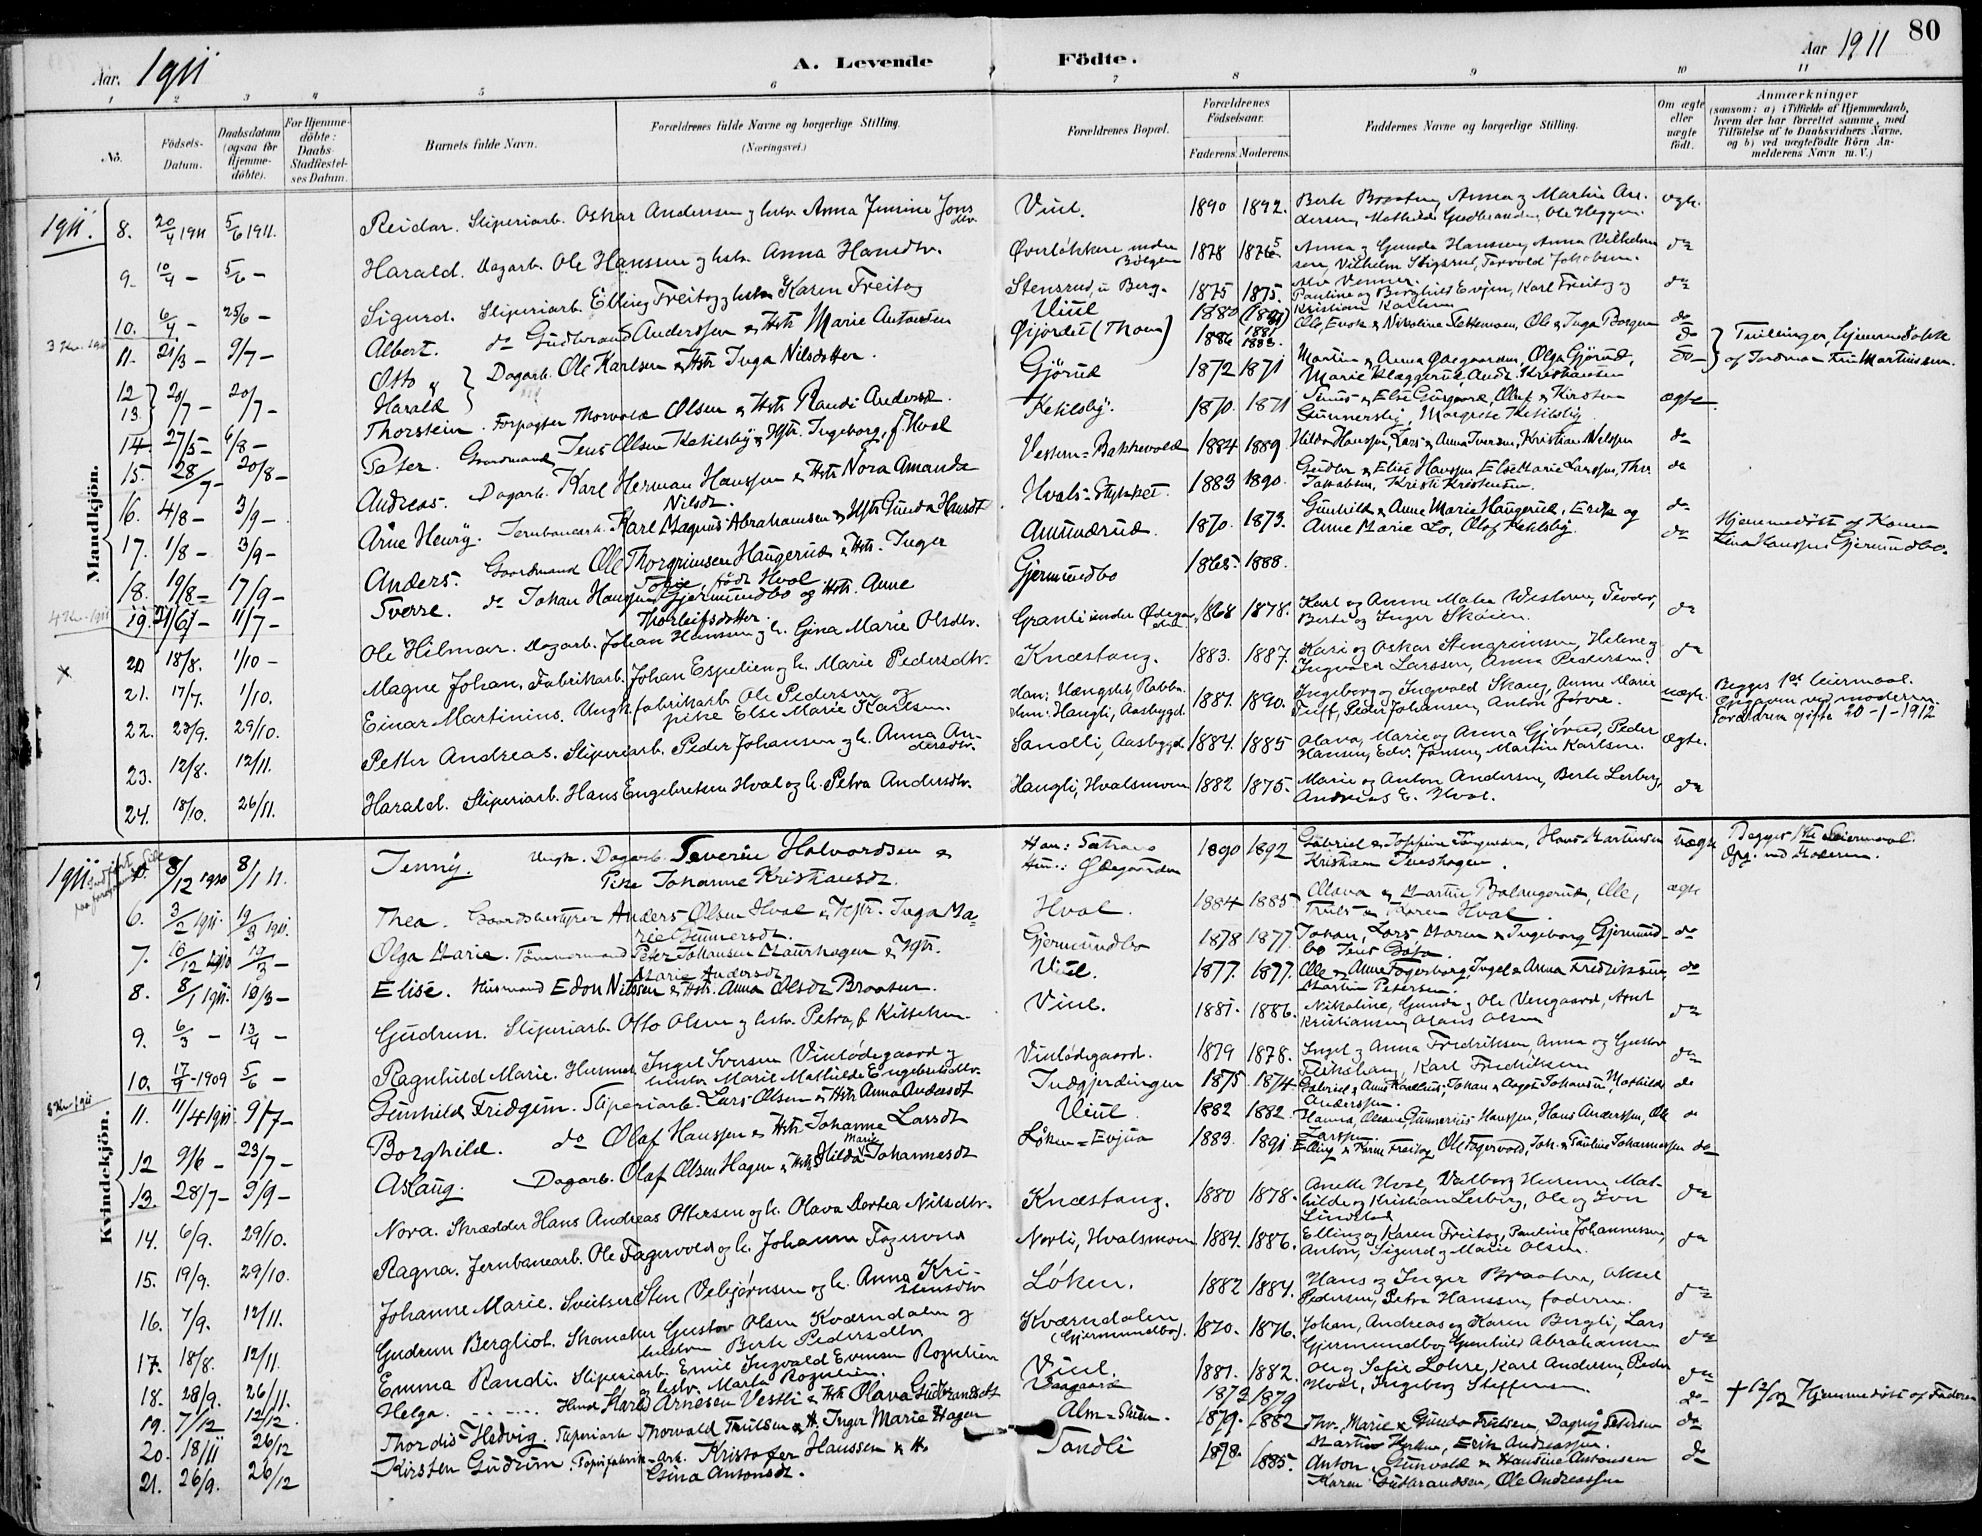 80
Aar. 1911
A. Levende Fødte.
Aar 1911
1 2 3 4 5 6 7 8 9 10 11
No.
Fødsels-Datum.
Daabsdatum (ogsaa for Hjemme-døbte).
For Hjemme-døbte: Daabs-Stadfæstel-ses Datum.
Barnets fulde Navn.
Forældrenes fulde Navne og borgerlige Stilling. (Næringsvei.)
Forældrenes Bopæl.
Forældrenes Fødselsaar.
Faderens. Moderens.
Faddernes Navne og borgerlige Stilling.
Om ægte eller uægte født.
Anmærkninger (saasom: a) i Tilfælde af Hjemmedaab, hvem der har forrettet samme, med Tilføielse af to Daabsvidners Navne, og b) ved uægtefødte Børn An-melderens Navn m. V.)
Mandkjøn.
1911. 8. 20/4 1911 5/6 1911. Reidar. Sliperiarb. Oskar Andersen og hstr. Anna Jensine Jons dtr. Viul. 1890 1892. Berte Braaten, Anna og Martin An-dersen, Mathilde Gudbrandsen, Ole Heggen. ægte.
9. 10/4 – 5/6 – Harald. Dagarb. Ole Hanssen og hstr. Anna Hansdtr. Øverløkken under Bölgen 1878 1876 Anna og Gunda Hanssen, Anna Vilhelm-sen, Vilhelm Stigsrud, Torvald Jakobsen. do
10. 6/4 – 25/6 – Sigurd. Sliperiarb. Elling Freitog og hstr. Karen Freitog Stensrud, u. Berg. 1875 1875. Pauline og Borghild Evjen, Karl Freitog og Kristian Karlsen do
3 Kv. 1911 11. 21/3 – 9/7 – Albert. do Gudbrand Anderssen & Hstr Marie Antonsen Viul 1880 (1881) Ole, Enok & Nikoline Slettemoen, Ole & Inga Borgen do
12 13. 20/7 – 20/7 – Otto & Harald Dagarb. Ole Karlsen & Hstr Inga Nilsdatter. Øijordet (Thoen) 1886 do do Tvillinger, hjemmedøbte af Jordmor Fru Martinssen.
14. 27/5 – 6/8 – Thorstein. Forpagter Thorvald Olsen & Hstr Randi Andersd. Gjørud 1872 1871 Martin & Anna Ødegaarden, Olga Gjørud, Marie Klæggerud, Andr. Kristiansen
15. 28/7 – 20/8 – Peter. Gaardmand Jens Olsen Ketilsby & Hstr. Ingeborg, f. Hval Ketilsby. 1870. 1871 Gunnersby, Margrete Ketilsby ægte
16. 4/8 – 3/9 – Andreas. Dagarb. Karl Herman Hanssen & Hstr Nora Amanda Nilsdt. Vestern-Bakkevold 1884 1889. Hilda Hanssen, Lars & Anna Iversen, Kristian Nilssen do
17. 1/8 – 3/9 – Arne Henry. Jernbanearb. Karl Magnus Abrahamsen & Hstr Gunda Hansdt Hvals-Stykket. 1883 1890. Gudbr. & Elise Hanssen, Else Marie Larssen, Thv. Jakobsen, Kristi Kristensen. do
18. 19/8 – 17/9 – Anders. Gaardmand Ole Thorgrimsen Haugerud & Hstr. Inger Sofie, født Hval Amundrud. 1870. 1873. Gunhild & Anne Marie Haugerud, Erik og Anne Marie Lo, Olaf Ketilsby. do
4 Kv. 1911 19. 21/6 – 11/7 – Sverre. do Johan Hansen Gjermundbo og Hstr. Anne Thorleifsdatter. Gjermundbo 1865 1888. do Hjemmedøbt af Karen Lina Hanssen Gjermundbo.
20 18/8. 1/10 – Ole Hilmar. Dagarb. Johan Hanssen og h. Gina Marie Olsdtr. Granli under Ødegaarden 1868 1878. Karl og Anne Matea Western, Teodor, Berte og Inger Skøien. do
21. 17/7. 1/10. Magne Johan. Fabrikarb. Johan Espelien og h. Marie Pedersdtr. Knæstang. 1883. 1887. Kari og Oskar Stengrimsen, Helene og Ingvald Larssen, Anna Pedersen. do
22. 23/9. 29/10. Einar Martinius. Ungk. fabrikarb. Ole Pedersen og pike Else Marie Karlsen. Han: Hængslet, Rabba. Hun: Haugli, Aasbygd. 1881. 1890. Ingeborg og Ingvald Skaug, Anne Marie Tuff, Peder Johansen, Anton Jørve. uægte. Begges 1ste leiermaal. Opgaven ved moderen. Forældrene gifte 20-1-1912
23. 12/8. 12/11. Petter Andreas. Sliperiarb. Peder Johansen og h. Anna An-dersdtr. Sandli, Aasbygd. 1884. 1885 Olava, Marie og Anna Gjørud, Peder Hansen, Edv. Jansen, Martin Karlsen. ægte.
24. 18/10. 26/11. Harald. Sliperiarb. Hans Engebretsen Hval og h. Petra Andersdtr. Haugli, Hvalsmoen 1882 1875. Marie og Anton Andersen, Berte Lerberg, Andreas E. Hval. do
Kvindekjøn.
1911 8/12 1910 8/1 11. Jenny. Ungk. Dagarb. Severin Halvordsen & Pike Johanne Kristiansdt. Han: Sætrang Hun: Ødegaarden 1890 1892 Gabriel & Josefine Jørgensen, Hans Martinsen Kristian Tveshagen. uægte Begges 1ste Leiermaal. Opg. ved Moderen.
6. 3/2 1911. 19/3 1911. Thea. Gaardsbestyrer Anders Olsen Hval & Hstr. Inga Ma-rie Gunnersdt. Hval. 1884 1885 Olava & Martin Bolsugerud, Ole, Truls & Karen Hval. ægte
7. 10/12 1910 19/3 – Olga Marie. Tømmermand Peter Johansen Maurhagen & Hstr. Marie Andersdt Gjermundbo 1878 1877. Johan, Lars, Maren & Ingeborg Gjermund-bo do
8. 8/1 1911. 19/3 – Elise. Husmand Edon Nilssen & Hstr. Anna Olsdt Braaten. Viul. 1877. 1877. Ole & Anne Fagerborg, Ingel & Anna Fredriksen, Martin Petersen. do
9. 6/3 – 13/4 – Gudrun. Sliperiarb. Otto Olsen og hstr. Petra, f. Kittelsen. Viul. 1881. 1886. Nikoline, Gunda og Ole Vengaard, Arnt Kristiansen, Olaus Olsen do
10. 17/9 – 1909 5/6 – Ragnhild Marie. Husmd. Ingel Iversen Viulødegaard og hustr. Marie Mathilde Engebretsdtr. Viulødegaard. 1879 1878. Ingel og Anna Fredriksen, Anna og Gustav Flikshaug, Karl Fredriksen do
3 Kv. 1911 11. 11/4 1911 9/7 – Gunhild Fridgun. Sliperiarb. Lars Olsen & Hstr Anna Andersdt Indgjerdingen 1875 1874 Gabriel & Anna Karelius, Johan & Aagot Johansen, Mathilde Anderssen. do
12 9/6 – 23/7 – Borghild. do Olaf Hanssen & Hstr Johanne Larsdt Viul 1882 1882. Hanna, Olava, Gunnerius Hanssen, Hans Anderssen, Ole Larssen. do
13. 28/7 – 9/9 – Aslaug. Dagarb. Olaf Olsen Hagen & Hstr Hilda Marie Johannesdt Løken-Evjua 1883. 1891 Elling & Karen Freitog, Ole Fagervold, Joh. & Pauline Johannessen do
14. 6/9. 29/10. Nora. Skrædder Hans Andreas Ottersen og h. Olava Dortea Nilsdtr. Knæstang. 1880 1878. Anette Hval, Valborg Hurum, Mat-hilde og Kristian Lerberg, Ole og Iver Lindstad do
15. 19/9. 29/10. Ragna. Jernbanearb. Ole Fagervold og h. Johanne Fagervold Norli, Hvalsmoen 1884. 1886. Elling og Karen Freitog, Pauline Johannessen, Anton, Sigurd og Marie Olsen. do
16. 7/9. 12/11. Johanne Marie. Sveitser Sten Vebjørnsen og h. Anna Kri-stensdtr Løken. 1882 1884. Hans og Inger Braaten, Aksel Pedersen, Petra Hanssen, faderen. do
17. 18/8. 12/11. Gudrun Bergliot. Skomaker Gustav Olsen Kværndalen og hustru Berte Pedersdtr. Kværndalen (Gjermundbo). 1870. 1876. Johan, Andreas og Karen Bergli, Lars Gjermundbo, Gunhild Abrahamsen do
18. 28/9. 26/11. Emma Randi. Sliperiarb. Emil Ingvald Evensen Rognlien og hstr. Marta Rognlien. Viul. 1881. 1882. Ole og Sofie Lohre, Karl Andersen, Peder Hval, Ingeborg Steffensen. do
19. 7/12. 12/12. Helga. Harald Arnesen Vestli & Hstr Olava Gudbrandsdt 1873 1879 do † 12/12 Hjemmedøbt af Faderen
20. 18/11 26/12 Thordis Hedvig. Sliperiarb Thorvald Trulsen & H. Inger Marie Hagen Alm-Skuen. 1879. 1882 Thv. Marie & Gunda Trulsen, Dagny Petersen Martin Herben, Erik Andreassen. do
21. 26/9. 26/12 Kirsten Gudrun. Papirfabrik-Arb. Kristofer Hanssen & H. Gina Antonsdt. Sandli 1878. 1885. Anton, Gunvald & Hansine Antonsen Karen Gudbrandsen, Ole Andreassen do